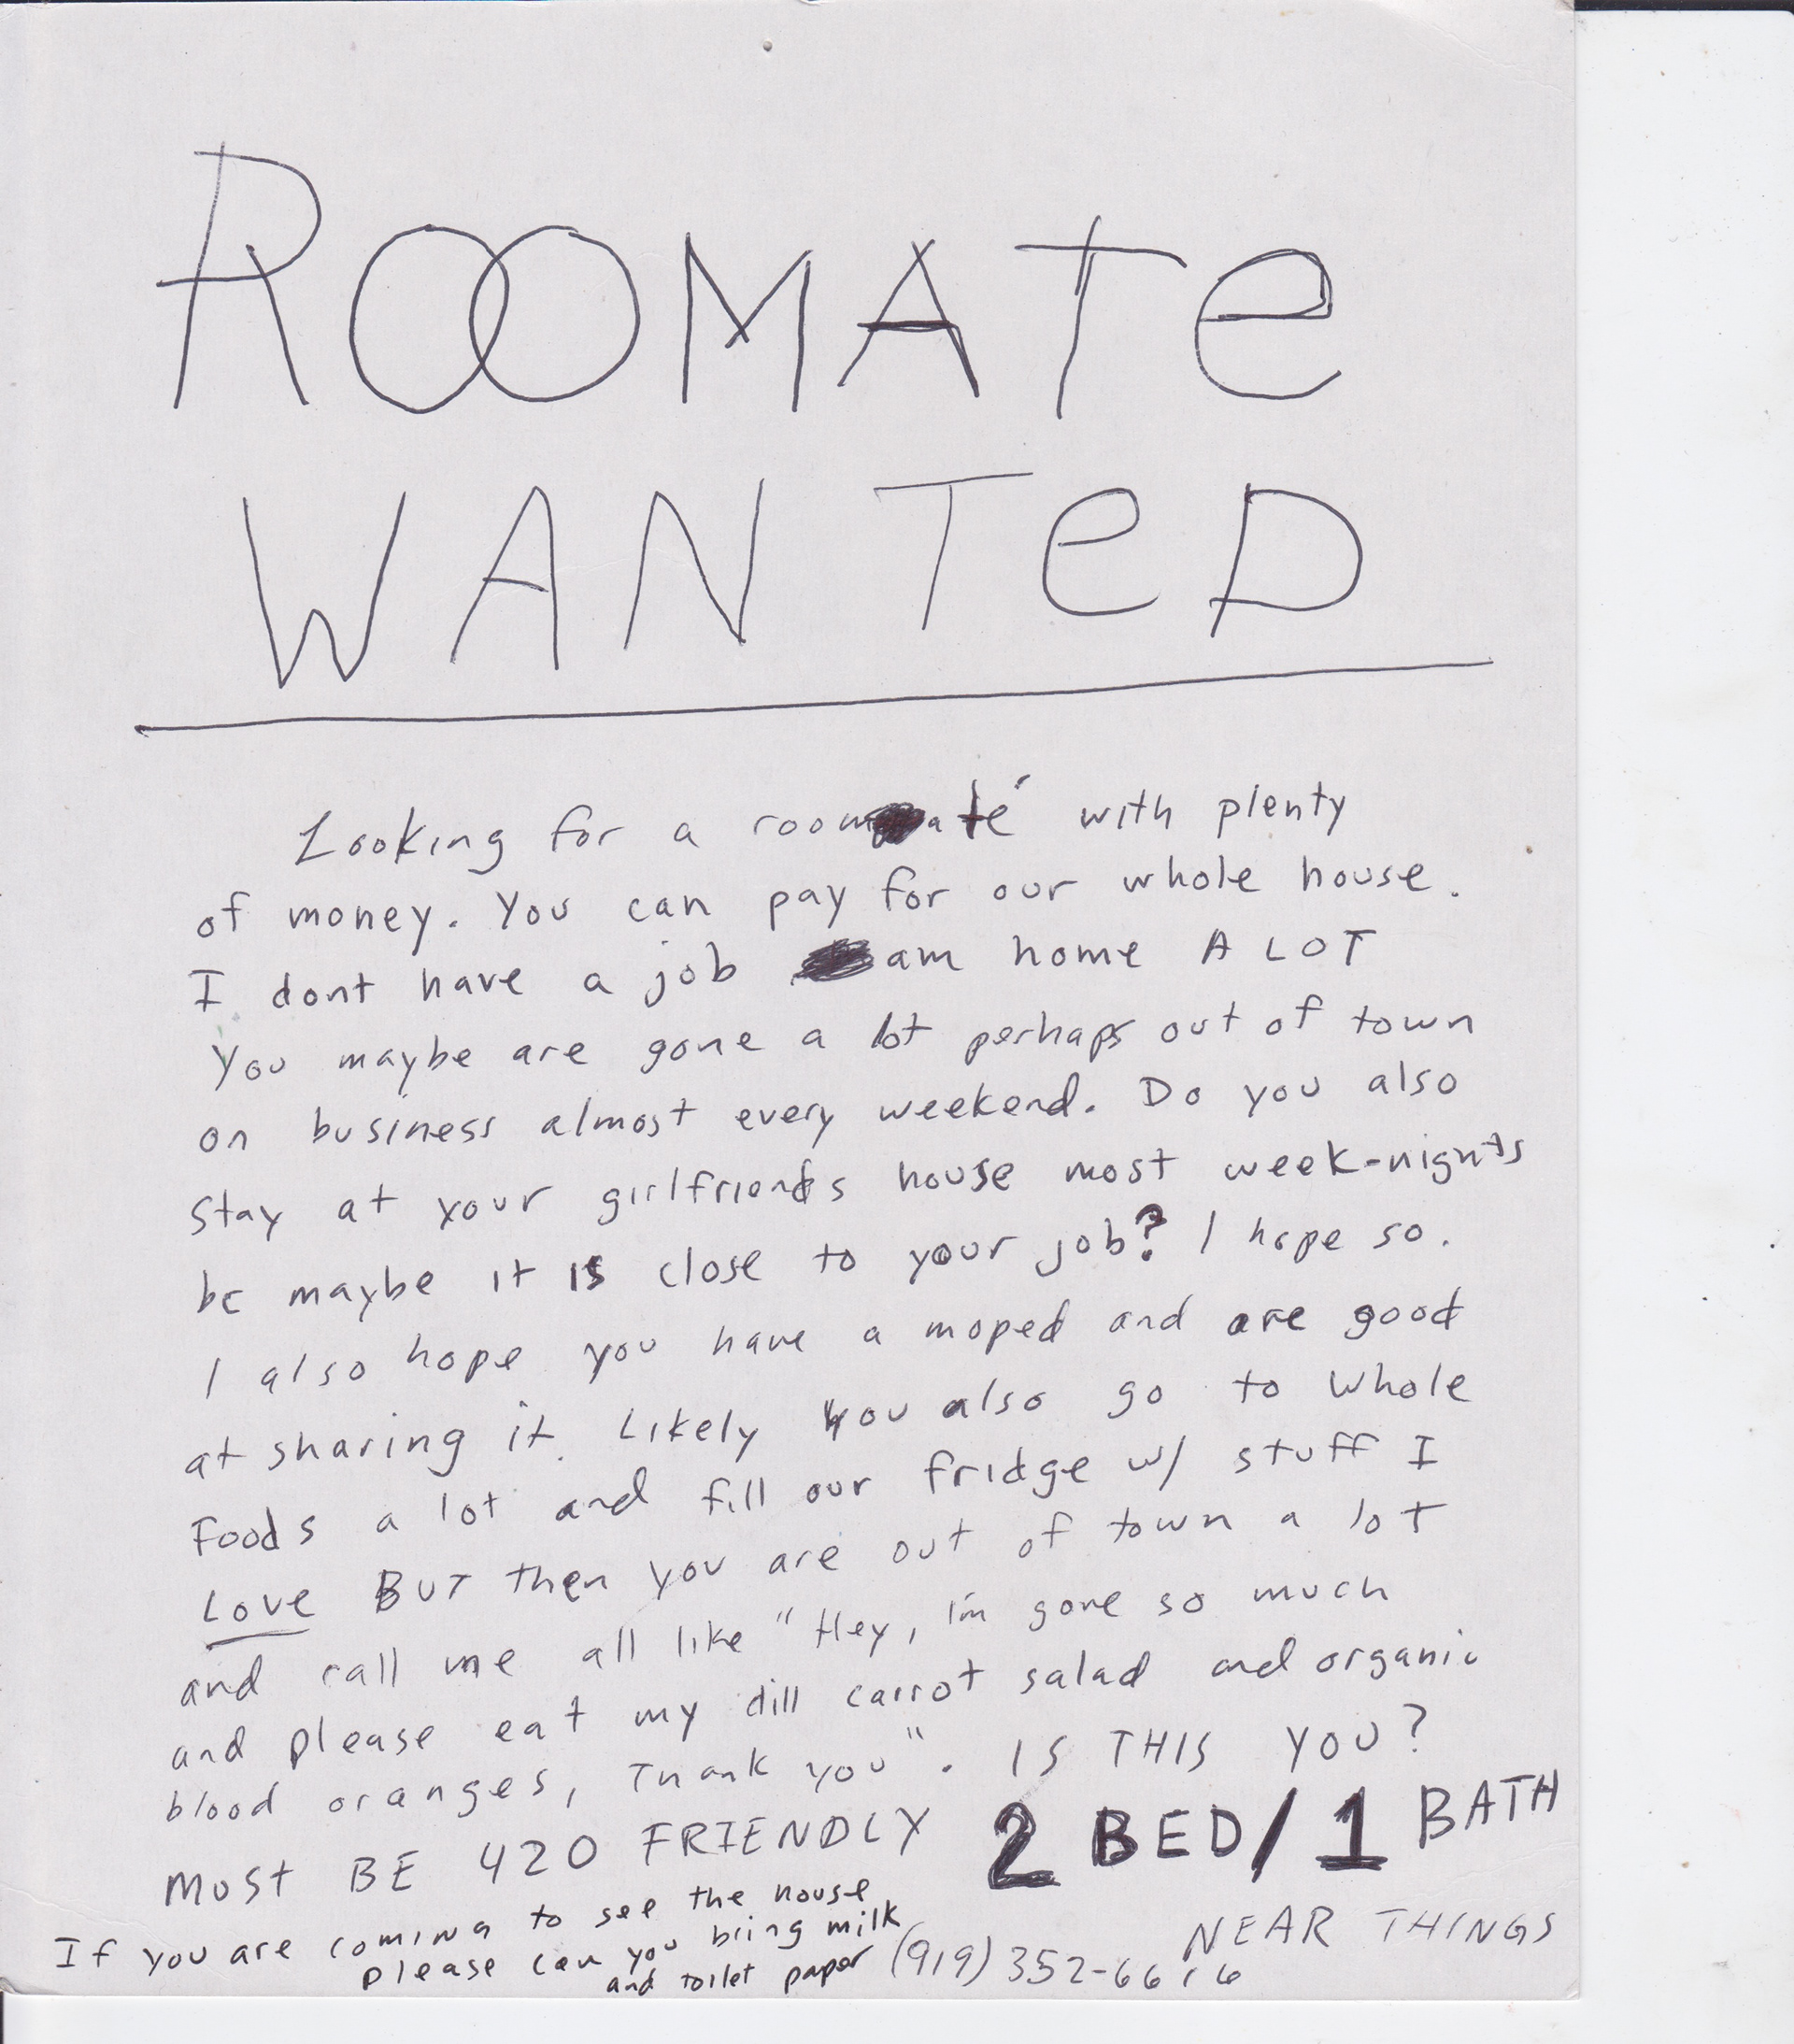 ROOMATe
WANTeD
Looking for a roomate with plenty
of money. You can pay for our whole house.
I dont have a job am home A LOT
You maybe are gone a lot perhaps out of town
on business almost every weekend. Do you also
stay at your girlfriends house most week-nights
bc maybe it is close to your job? I hope so.
I also hope you have a moped and are good
at sharing it. Likely you also go to Whole
Foods a lot and fill our fridge w/ stuff I
Love BUT then you are out of town a lot
and call me all like "Hey, I'm gone so much
and please eat my dill carrot salad and organic
blood oranges, Thank you". IS THIS YOU?
MUST BE 420 FRIENDLY 2 BED/1 BATH
NEAR THINGS
If you are coming to see the house
please can you bring milk
and toilet paper (919) 352-6616